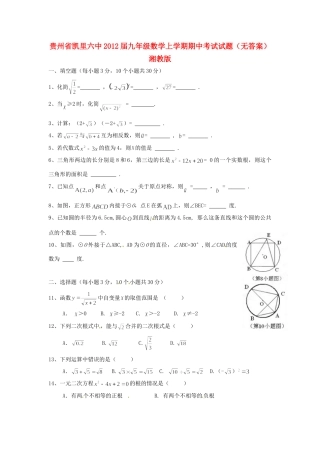 贵州省凯里六中2012届九年级数学上学期期中考试试题（无答案）
湘教版
一、填空题（每小题3分，10个小题共30分）
1、化简 = ______ , = ______ , = ______
2、当 ≥2时，化简 = ______ .
3、计算：(2+√3)(2-√3) = ______
4、若 与 互为相反数，则 = ______
5、若代数式 -3x的值为4，则1的值是 ______ .
6、三角形两边的长分别是8和6，第三边的长是 x²-12x+20=0 的一个实数根，则这个三角形的面积是 ______ .
7、已知点 A(2,a) 和点 关于原点对称，则 = ______ ; = ______ .
8、如图，正方形ABCD内接于⊙O,点E在 上，则∠BEC= ______ 度.
9、已知圆的半径为6.5cm,圆心到直线 的距离为4.5cm，那么这条直线和这个圆的公共点的个数是 ______ 个.
10、如图，⊙O外接于△ABC，AB为⊙O的直径，∠ABC=30°,则∠CAD的度数为 ______ 度.
(第8小题图)
二、选择题（每小题3分，10个小题共30分）
11、函数 中自变量x的取值范围是（ ）
A、x＞0 B、x＞-2 C、x≥-2 D、x≠-2
(第10小题图)
12、下列二次根式中，能与 合并的二次根式是（ ）
A. B. C. D.
13、下列运算中错误的是（ ）
A. B. C. D.
14、一元二次方程 x²-4x+2=0 的根的情况是（ ）
A．有两个不相等的正根 B．有两个不相等的负根